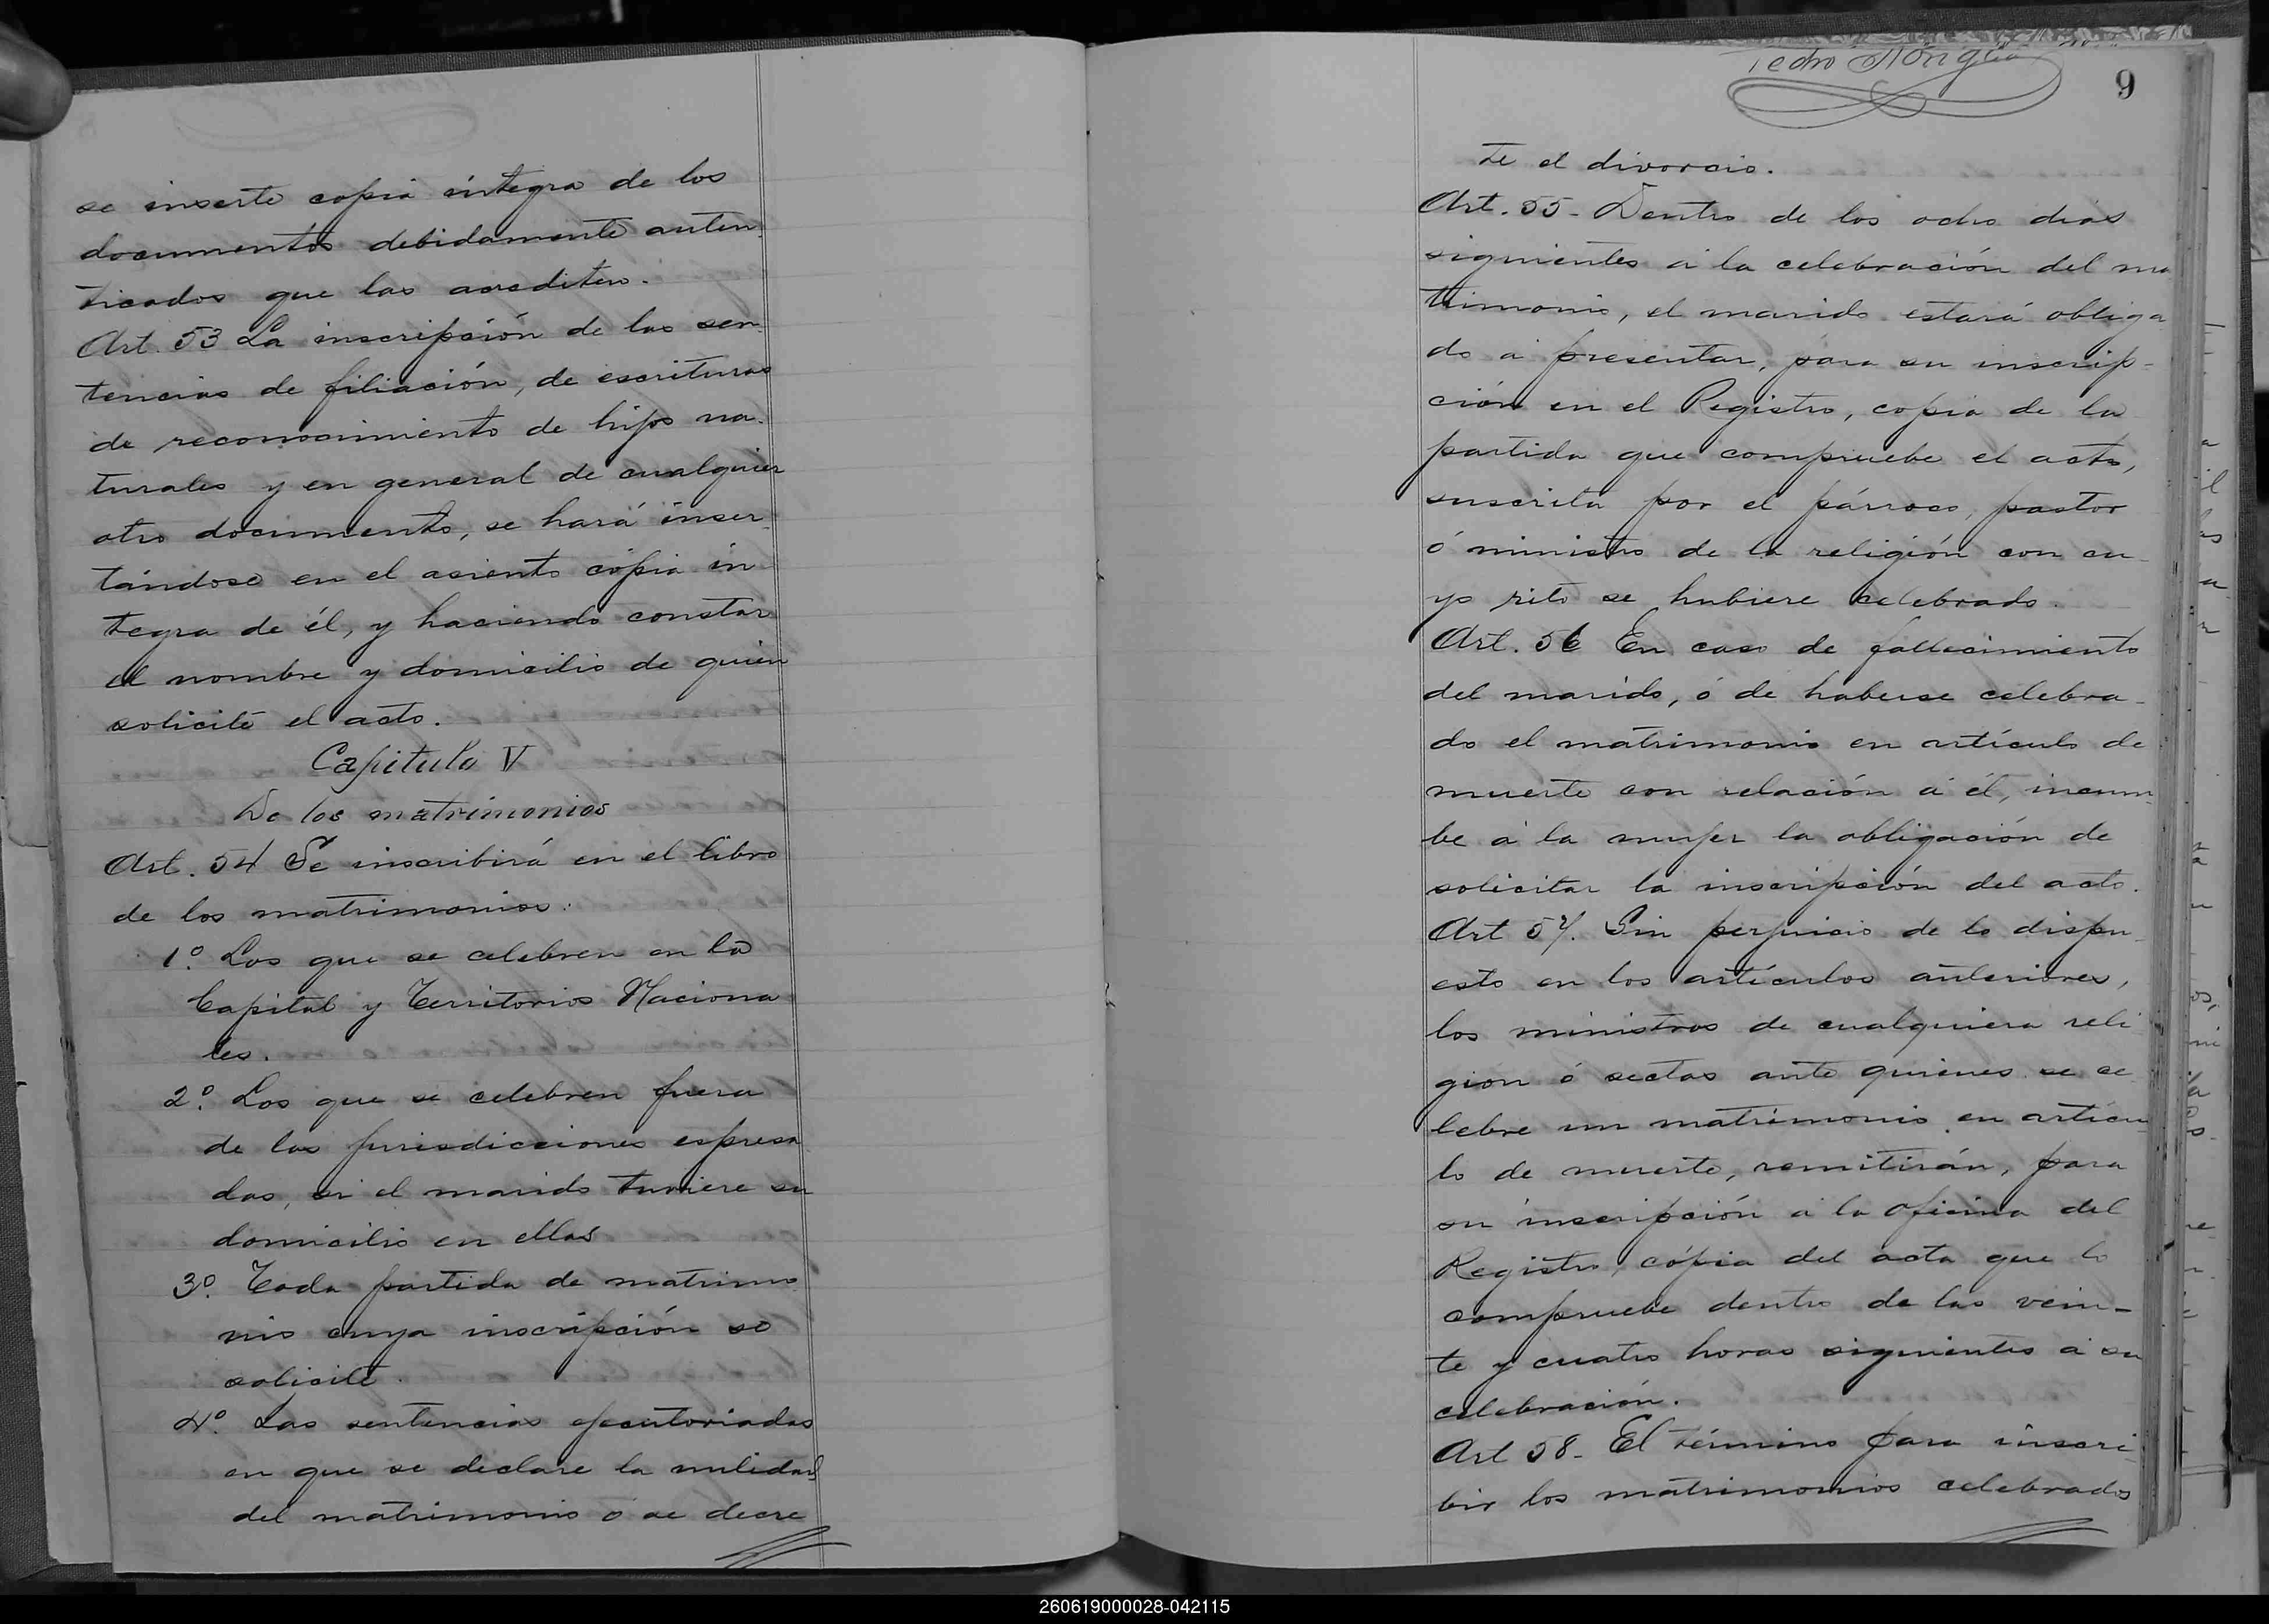 se inserte copia íntegra de los
documentos debidamente auten-
ticados que las acrediten.
Art. 53 La inscripción de las sen-
tencias de filiación, de escrituras
de reconocimiento de hijos na-
turales y en general de cualquier
otro documento, se hará inser-
tándose en el asiento cópia ín-
tegra de él, y haciendo constar
el nombre y domicilio de quien
solicite el acto.
Capítulo V
De los matrimonios
Art. 54 Se inscribirá en el libro
de los matrimonios:
1º. Los que se celebren en la
Capital y Territorios Naciona
les.
2º. Los que se celebren fuera
de las jurisdicciones espresa
das, si el marido tuviere su
domicilio en ellas
3º. Toda partida de matrimo
nio cuya inscripción se
solicite.
4º. Las sentencias ejecutoriadas
en que se declare la nulidad
del matrimonio ó se decre
Pedro
9
te el divorcio.
Art. 55- Dentro de los ocho dias
siguientes á la celebración del ma
trimonio, el marido estará obliga
do á presentar, para su inscrip-
ción en el Registro, copia de la
partida que compruebe el acto,
suscrita por el párroco, pastor
ó ministro de la religión con cu-
yo rito se hubiere celebrado.
Art. 56 En caso de fallecimiento
del marido, ó de haberse celebra-
do el matrimonio en artículo de
muerte con relación á él, incum-
be á la mujer la obligación de
solicitar la inscripción del acto.
Art 57. Sin perjuicio de lo dispu-
esto en los artículos anteriores,
los ministros de cualquiera reli
gion ó sectas ante quienes se ce-
lebre un matrimonio en artícu-
lo de muerte, remitirán, para
su inscripción a la oficina del
Registro, cópia del acta que lo
compruebe dentro de las vein-
te y cuatro horas siguientes á su
celebración.
Art 58- El término para inscri-
bir los matrimonios celebrados
260619000028-042115